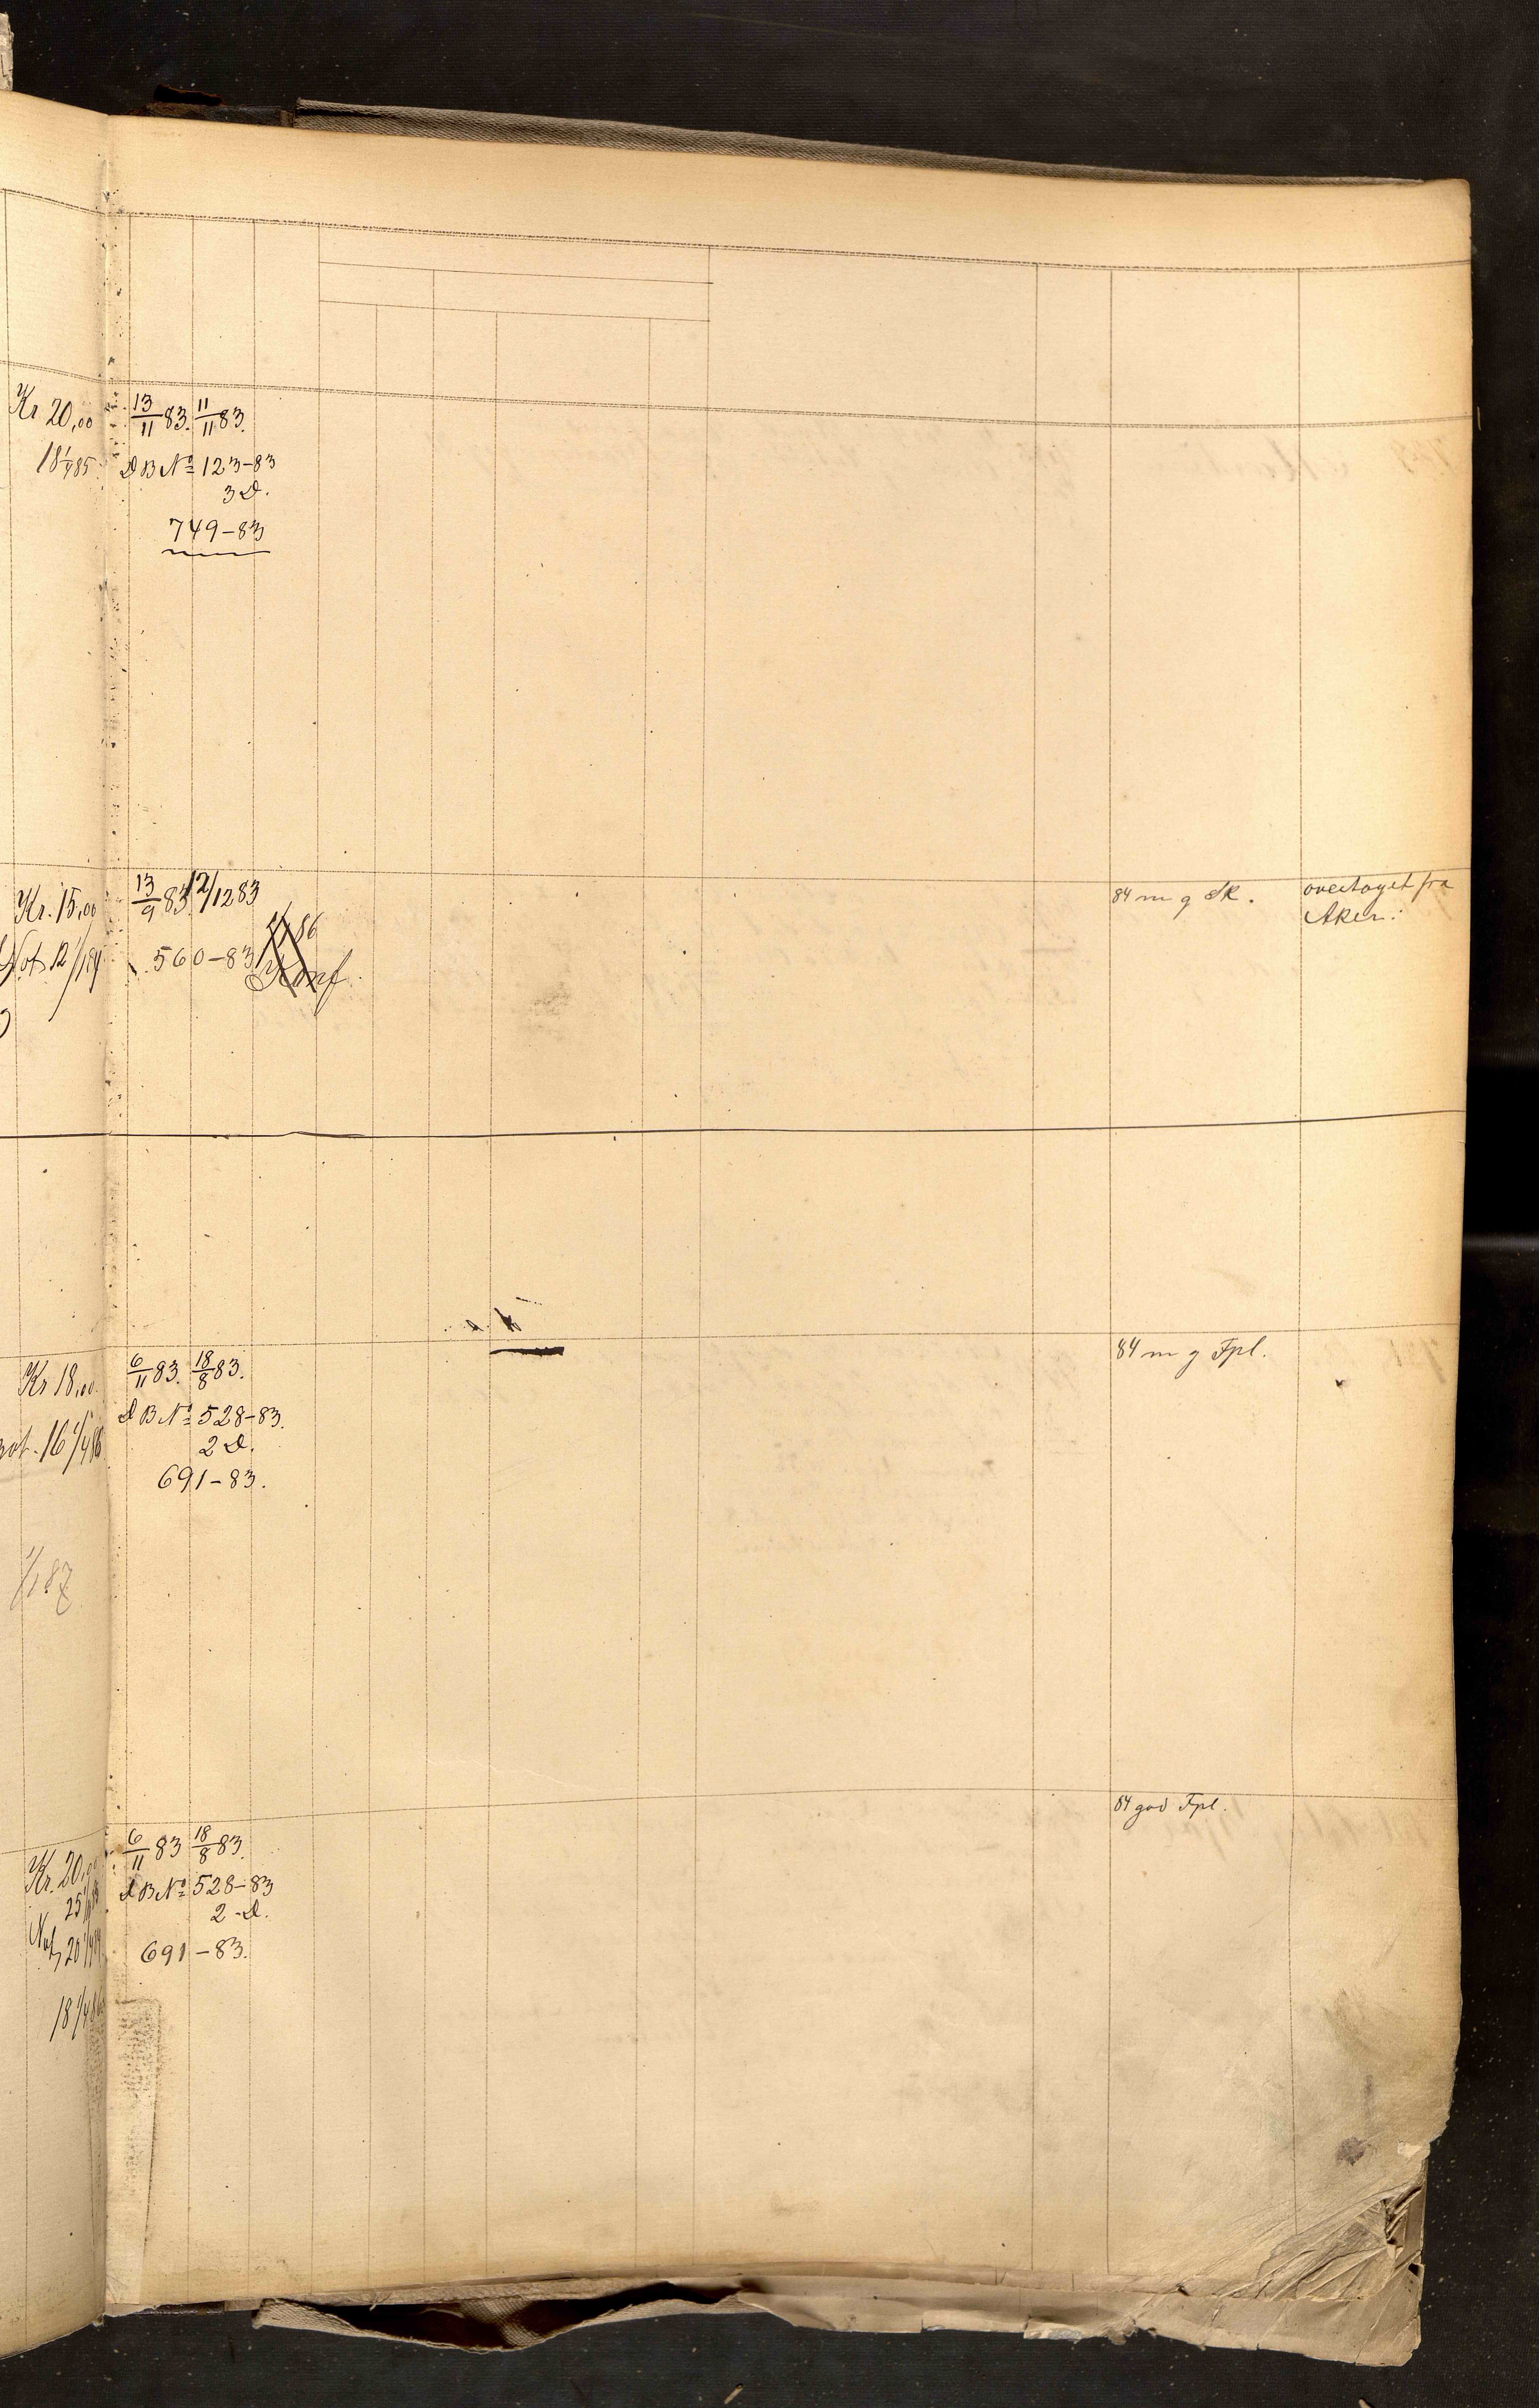 Kr. 20,00 13/11 83. 11/11 83.
18 1/4 85. D B No 123-83
3 D.
749-83
Kr. 15,00 13/9 83. 12/12 83 84 m g SR. overtaget fra
Aker.
Not 12 560-83
Konf
Kr 18,00 6/11 83. 18/8 83. 84 m g Fpl.
D B No 528-83.
not. 16 1/4 86 2 D.
691-83.
1/1 87
84 god Fpl.
Kr. 20,00 6/11 83 18/8 83.
25 D B No 528-83
2 D.
20 691-83.
18 1/4 86